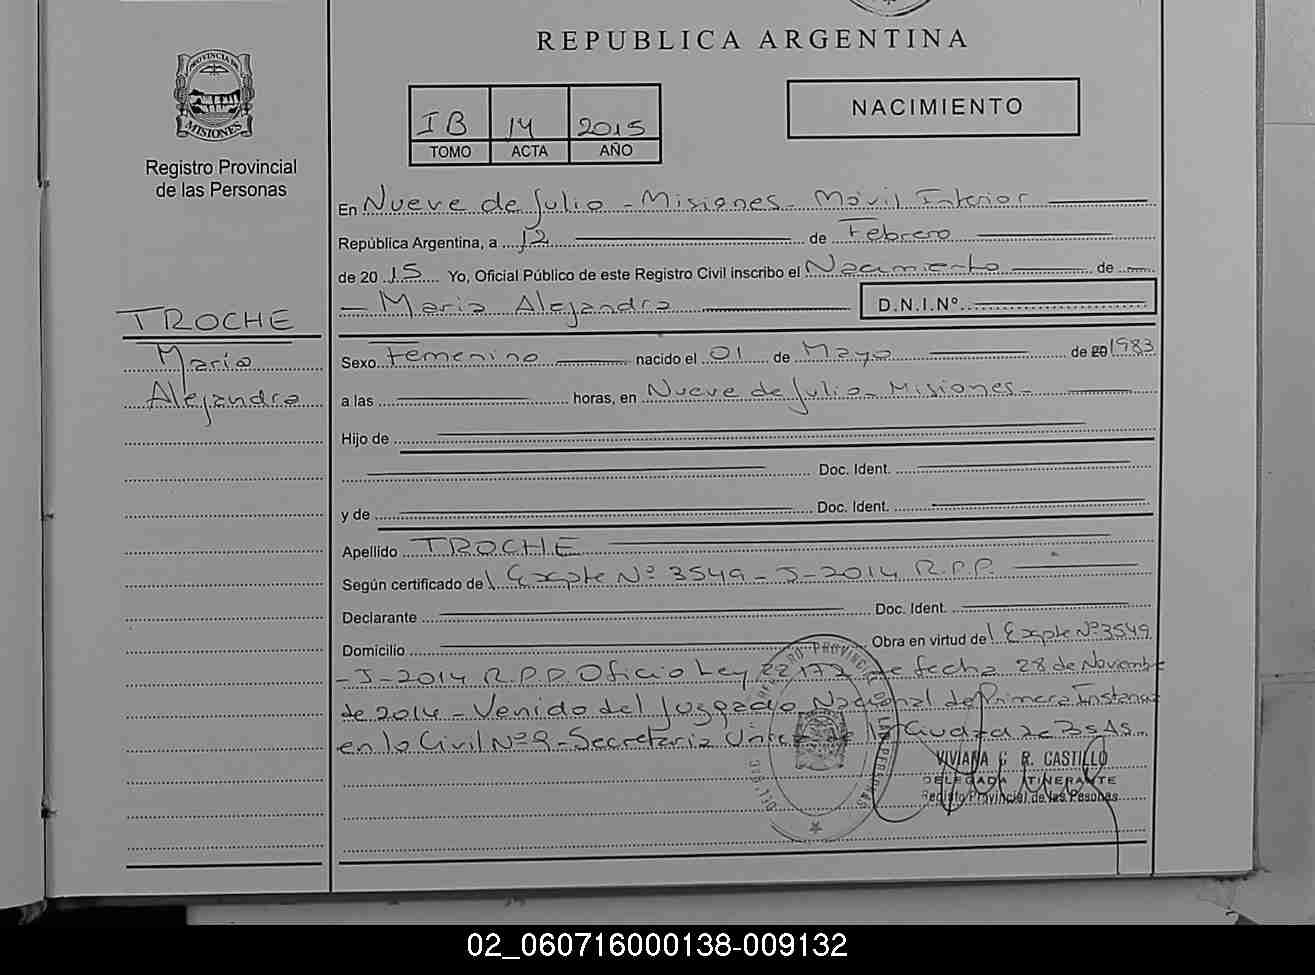 REPUBLICA ARGENTINA
PROVINCIA DE
MISIONES
Registro Provincial
de las Personas
IB 14 2015
TOMO ACTA AÑO
NACIMIENTO
En Nueve de Julio - Misiones - Móvil Interior
República Argentina, a 12 de Febrero
de 2015 Yo, Oficial Público de este Registro Civil inscribo el Nacimiento de
Maria Alejandra D.N.I.Nº
TROCHE
Maria
Alejandra
Sexo Femenino nacido el 01 de Mayo de 20 1983
a las horas, en Nueve de Julio - Misiones -
Hijo de
Doc. Ident.
y de Doc. Ident.
Apellido TROCHE
Según certificado del Expte Nº 3549 - J - 2014 R.P.P.
Declarante Doc. Ident.
Domicilio Obra en virtud del Expte Nº 3549
- J - 2014 R.P.P. Oficio Ley 22172 de fecha 28 de Noviembre
de 2014 - Venido del Juzgado Nacional de Primera Instancia
en lo Civil Nº 9 - Secretaria Unica de la Ciudad de Bs As.
VIVIANA R. CASTILLO
DELEGADA ITINERANTE
Registo Provincial de las Pesonas
02_060716000138-009132